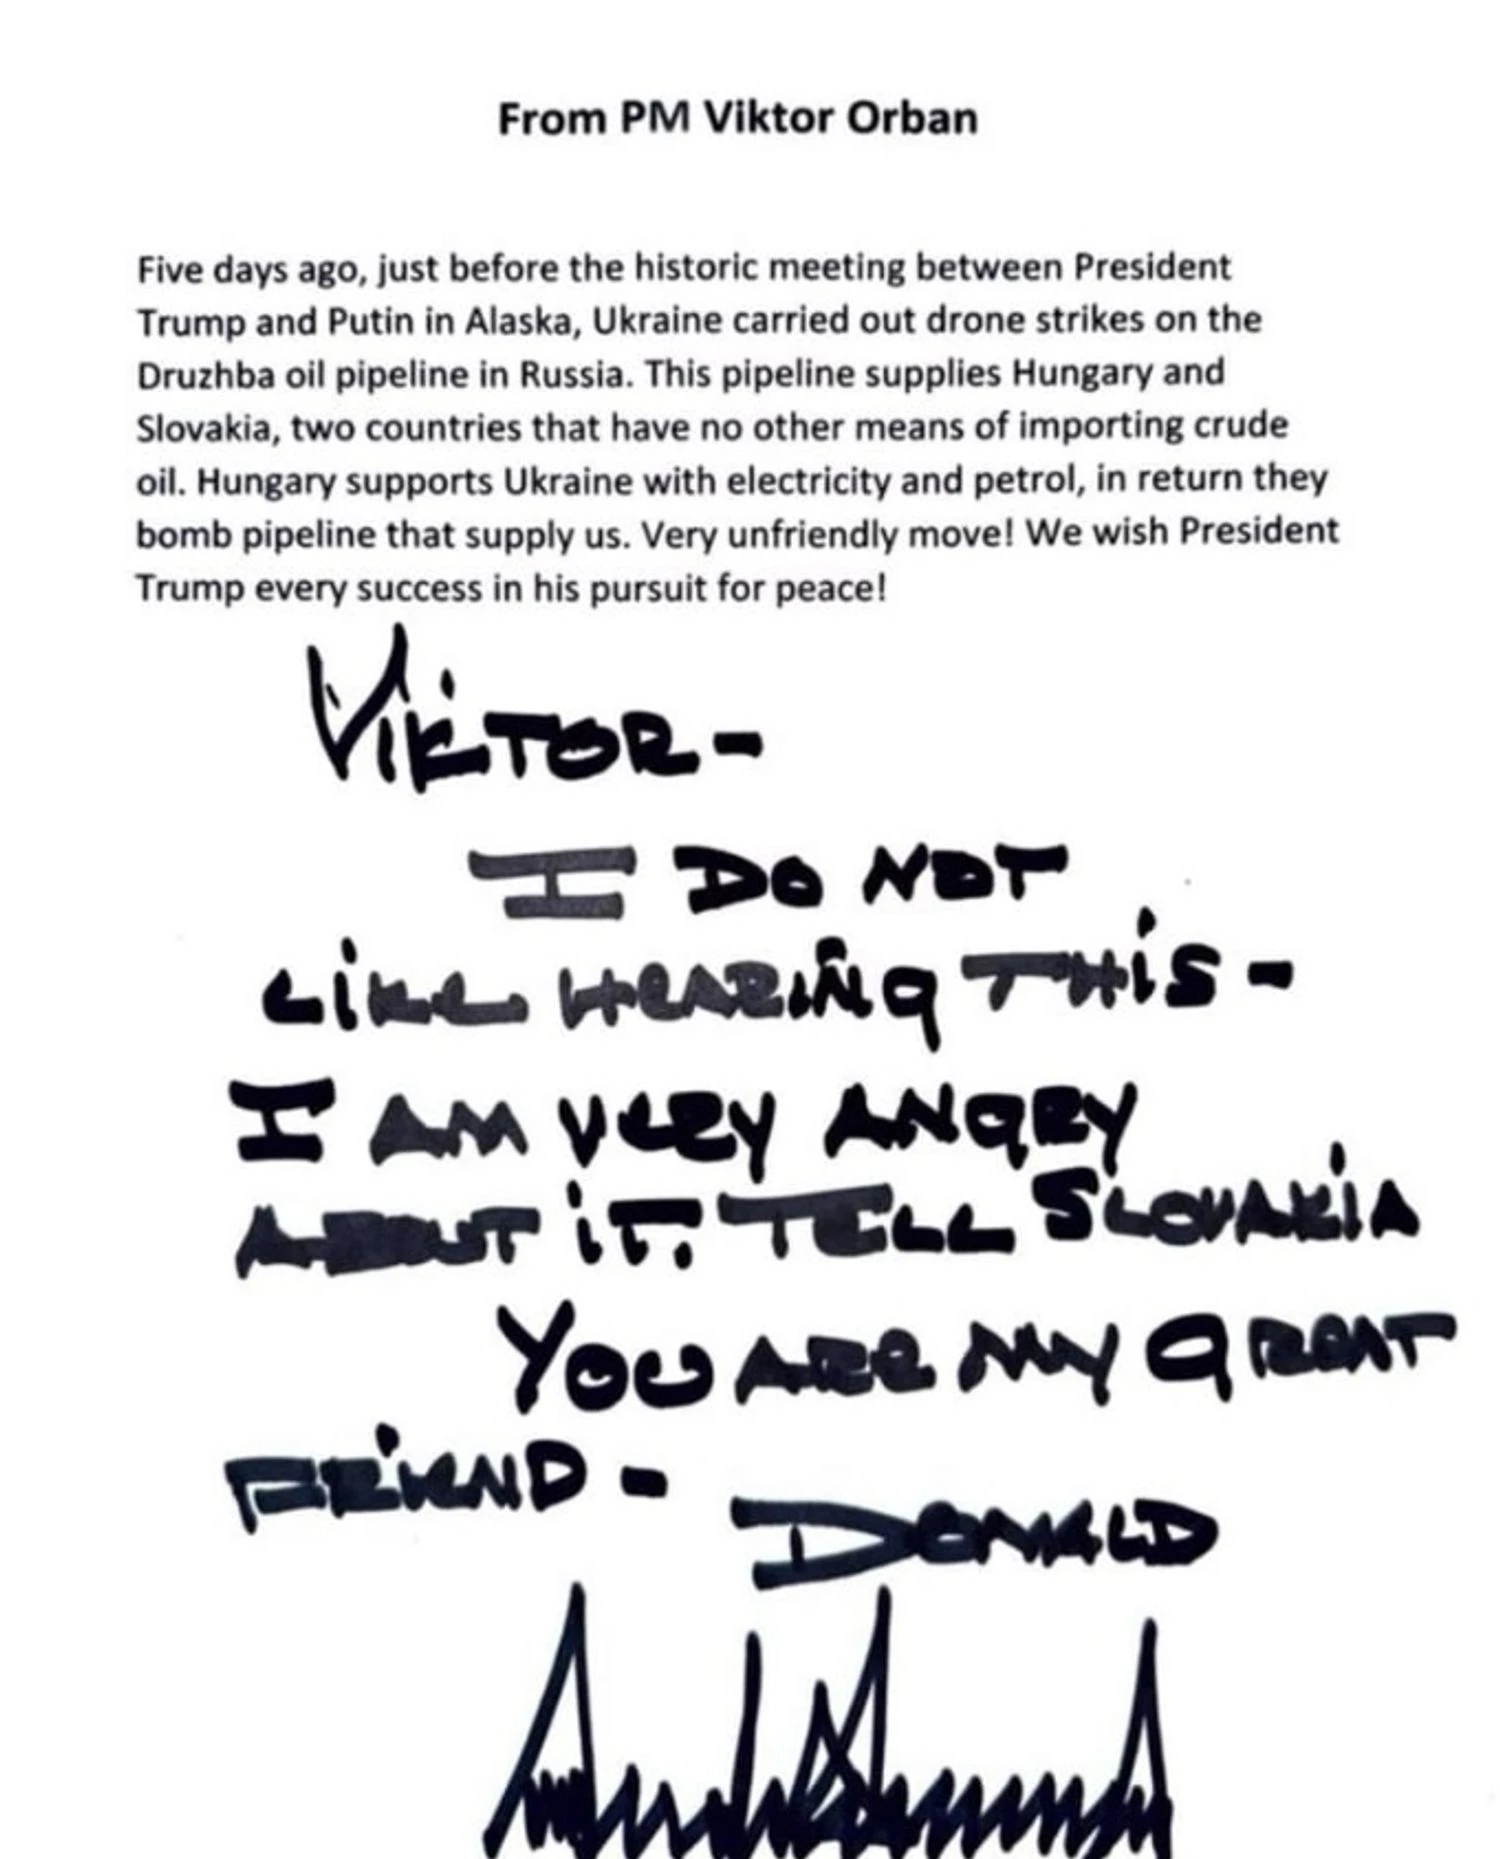 From PM Viktor Orban
Five days ago, just before the historic meeting between President
Trump and Putin in Alaska, Ukraine carried out drone strikes on the
Druzhba oil pipeline in Russia. This pipeline supplies Hungary and
Slovakia, two countries that have no other means of importing crude
oil. Hungary supports Ukraine with electricity and petrol, in return they
bomb pipeline that supply us. Very unfriendly move! We wish President
Trump every success in his pursuit for peace!
VIKTOR -
I DO NOT
LIKE HEARING THIS -
I AM VERY ANGRY
ABOUT IT. TELL SLOVAKIA
YOU ARE MY GREAT
FRIEND -
DONALD